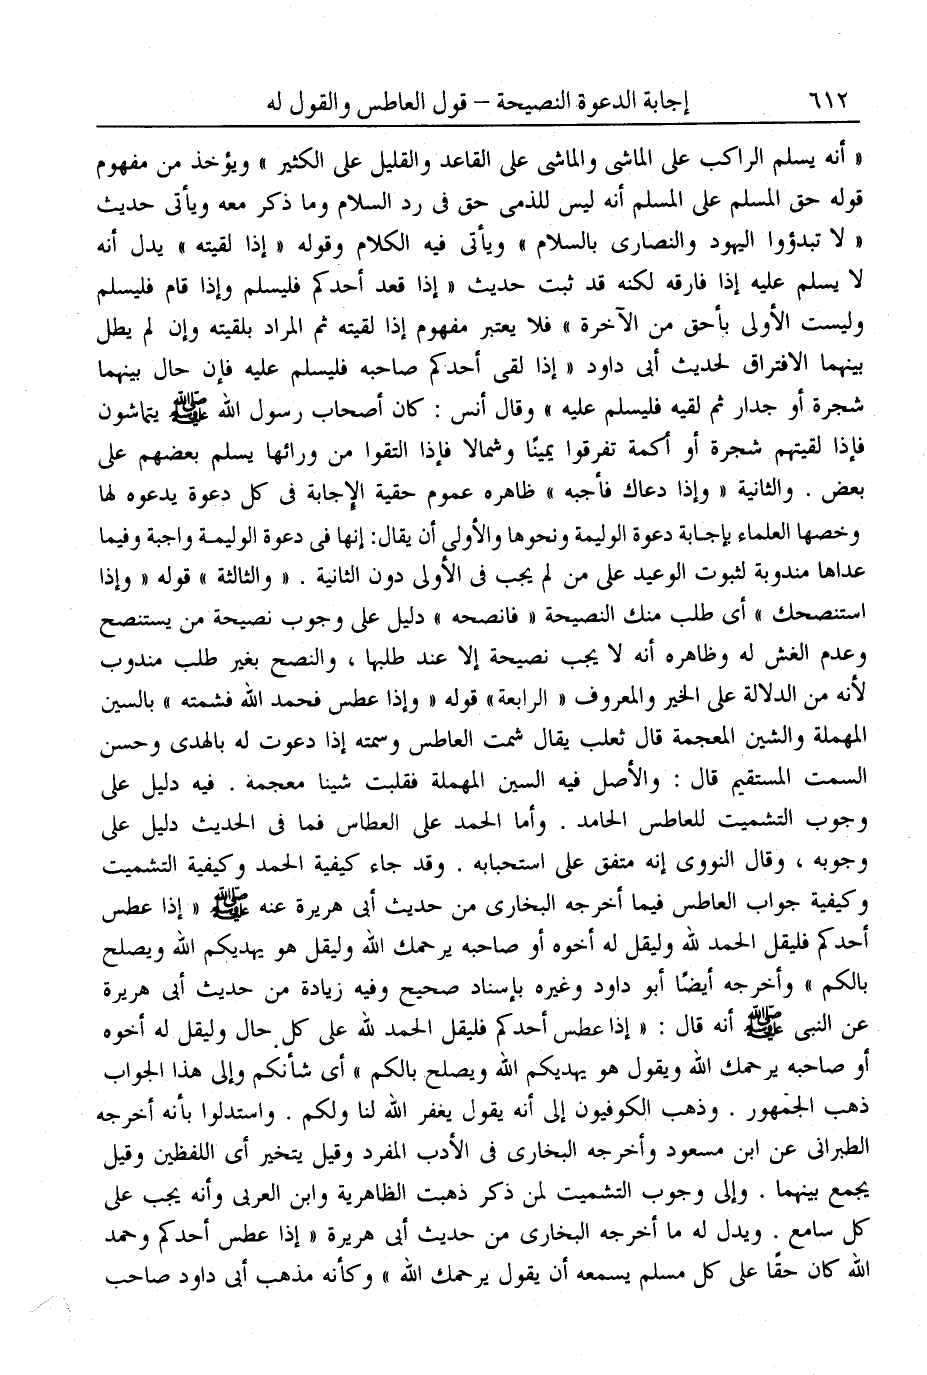 ٦١٢ إجابة الدعوة النصيحة – قول العاطس والقول له
« أنه يسلم الراكب على الماشى والماشى على القاعد والقليل على الكثير » ويؤخذ من مفهوم
قوله حق المسلم على المسلم أنه ليس للذمى حق فى رد السلام وما ذكر معه ويأتى حديث
« لا تبدؤوا اليهود والنصارى بالسلام » ويأتى فيه الكلام وقوله « إذا لقيته » يدل أنه
لا يسلم عليه إذا فارقه لكنه قد ثبت حديث « إذا قعد أحدكم فليسلم وإذا قام فليسلم
وليست الأولى بأحق من الآخرة » فلا يعتبر مفهوم إذا لقيته ثم المراد بلقيته وإن لم يطل
بينهما الافتراق لحديث أبى داود « إذا لقى أحدكم صاحبه فليسلم عليه فإن حال بينهما
شجرة أو جدار ثم لقيه فليسلم عليه » وقال أنس : كان أصحاب رسول الله ﷺ يتماشون
فإذا لقيتهم شجرة أو أكمة تفرقوا يمينًا وشمالا فإذا التقوا من ورائها يسلم بعضهم على
بعض . والثانية « وإذا دعاك فأجبه » ظاهره عموم حقية الإجابة فى كل دعوة يدعوه لها
وخصها العلماء بإجابة دعوة الوليمة ونحوها والأولى أن يقال : إنها فى دعوة الوليمة واجبة وفيما
عداها مندوبة لثبوت الوعيد على من لم يجب فى الأولى دون الثانية . « والثالثة » قوله « وإذا
استنصحك » أى طلب منك النصيحة « فانصحه » دليل على وجوب نصيحة من يستنصح
وعدم الغش له وظاهره أنه لا يجب نصيحة إلا عند طلبها ، والنصح بغير طلب مندوب
لأنه من الدلالة على الخير والمعروف « الرابعة » قوله « وإذا عطس فحمد الله فشمته » بالسين
المهملة والشين المعجمة قال ثعلب يقال شمت العاطس وسمته إذا دعوت له بالهدى وحسن
السمت المستقيم قال : والأصل فيه السين المهملة فقلبت شينا معجمة . فيه دليل على
وجوب التشميت للعاطس الحامد . وأما الحمد على العطاس فما فى الحديث دليل على
وجوبه ، وقال النووى إنه متفق على استحبابه . وقد جاء كيفية الحمد وكيفية التشميت
وكيفية جواب العاطس فيما أخرجه البخارى من حديث أبى هريرة عنه ﷺ « إذا عطس
أحدكم فليقل الحمد لله وليقل له أخوه أو صاحبه يرحمك الله وليقل هو يهديكم الله ويصلح
بالكم » وأخرجه أيضًا أبو داود وغيره بإسناد صحيح وفيه زيادة من حديث أبى هريرة
عن النبى ﷺ أنه قال : « إذا عطس أحدكم فليقل الحمد لله على كل حال وليقل له أخوه
أو صاحبه يرحمك الله ويقول هو يهديكم الله ويصلح بالكم » أى شأنكم وإلى هذا الجواب
ذهب الجمهور . وذهب الكوفيون إلى أنه يقول يغفر الله لنا ولكم . واستدلوا بأنه أخرجه
الطبرانى عن ابن مسعود وأخرجه البخارى فى الأدب المفرد وقيل يتخير أى اللفظين وقيل
يجمع بينهما . وإلى وجوب التشميت لمن ذكر ذهبت الظاهرية وابن العربى وأنه يجب على
كل سامع . ويدل له ما أخرجه البخارى من حديث أبى هريرة « إذا عطس أحدكم وحمد
الله كان حقًا على كل مسلم يسمعه أن يقول يرحمك الله » وكأنه مذهب أبى داود صاحب